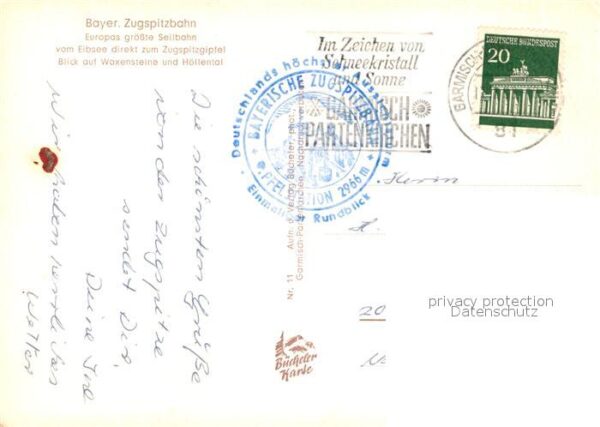 Bayer. Zugspitzbahn
Europas größte Seilbahn
vom Eibsee direkt zum Zugspitzgipfel
Blick auf Waxensteine und Höllental
Die schönsten Grüße
von der Zugspitze
sendet Dir
Deine
Wir haben herrliches
Wetter
Im Zeichen von
Schneekristall
und Sonne
GARMISCH
PARTENKIRCHEN
Deutschlands höchste
BAYERISCHE ZUGSPITZBAHN
GIPFELSTATION 2966 m
Einmaliger Rundblick
GARMISCH
81
DEUTSCHE BUNDESPOST
20
Herrn
20
Nr. 11 Aufn. u. Verlag Bücheler, phot.
Garmisch-Partenkirchen, Nachdruck
Bücheler
Karte
privacy protection
Datenschutz